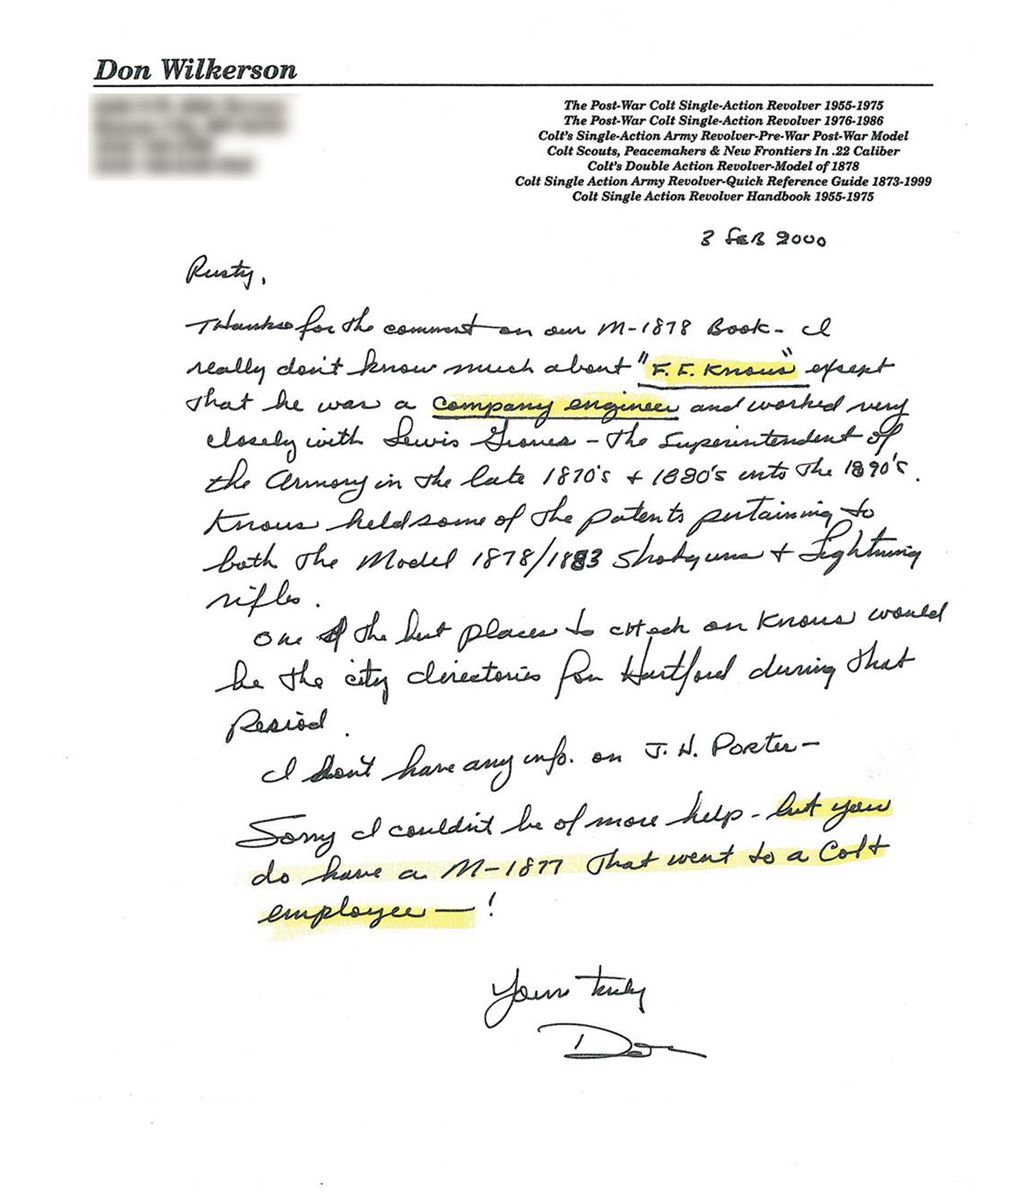 Don Wilkerson
The Post-War Colt Single-Action Revolver 1955-1975
The Post-War Colt Single-Action Revolver 1976-1986
Colt's Single-Action Army Revolver-Pre-War Post-War Model
Colt Scouts, Peacemakers & New Frontiers In .22 Caliber
Colt's Double Action Revolver-Model of 1878
Colt Single Action Army Revolver-Quick Reference Guide 1873-1999
Colt Single Action Revolver Handbook 1955-1975
3 FEB 2000
Rusty,
Thanks for the comment on our M-1878 Book - I
really don't know much about "F. F. Knous" except
that he was a company engineer and worked very
closely with Lewis Groves - The Superintendent of
the Armory in the late 1870's + 1880's into the 1890's.
Knous held some of the patents pertaining to
both the Model 1878/1883 Shotguns + Lightning
rifles.
One of the best places to check on Knous would
be the city directories for Hartford during that
Period.
I don't have any info. on J. H. Porter -
Sorry I couldn't be of more help - but you
do have a M-1877 that went to a Colt
employee - !
Yours truly
Don